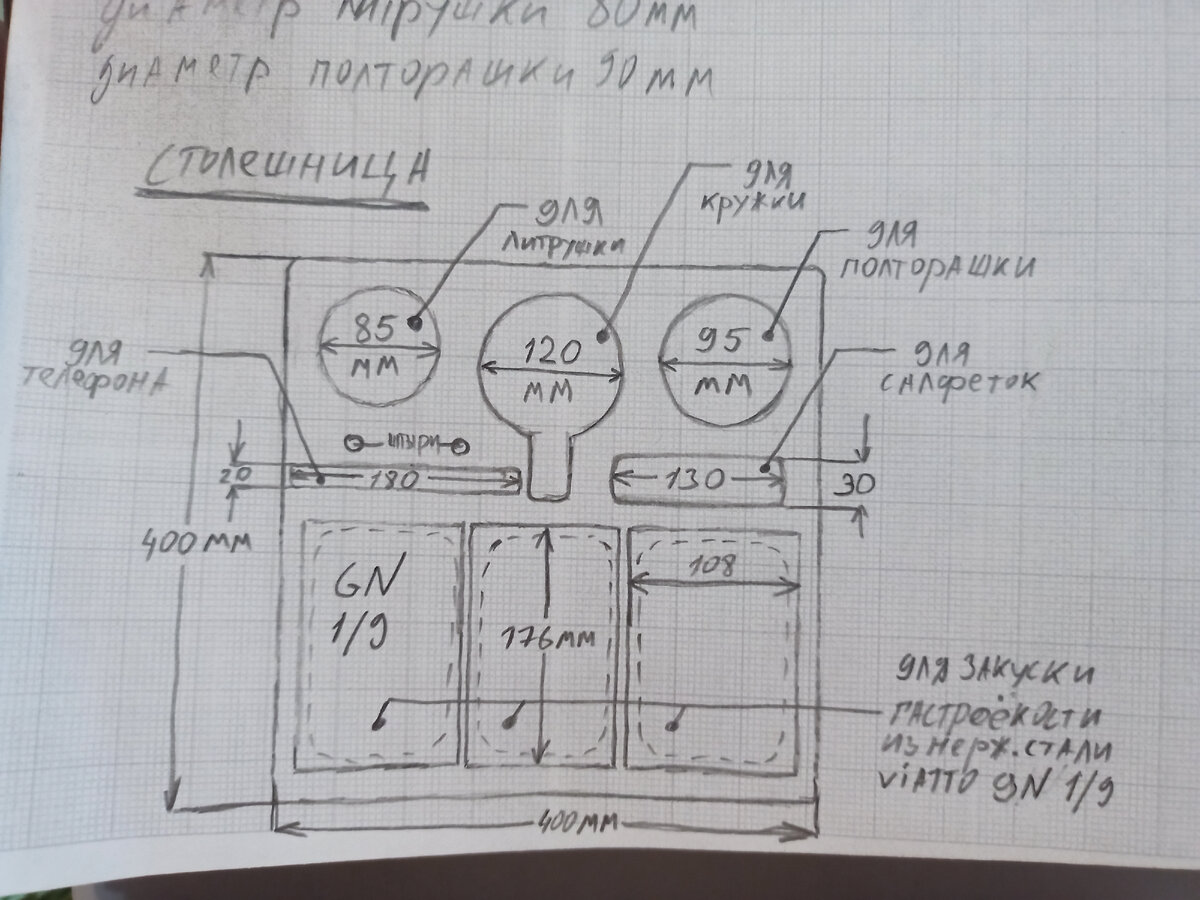 диаметр литрушки 80мм
диаметр полторашки 90мм
Столешница
для
кружки
для
литрушки
для
полторашки
85
мм
120
мм
95
мм
для
телефона
для
салфеток
штыри
20
180
130
30
400мм
GN
1/9
108
176мм
для закуски
гастроёкости
из нерж.стали
viATTO gN 1/9
400мм